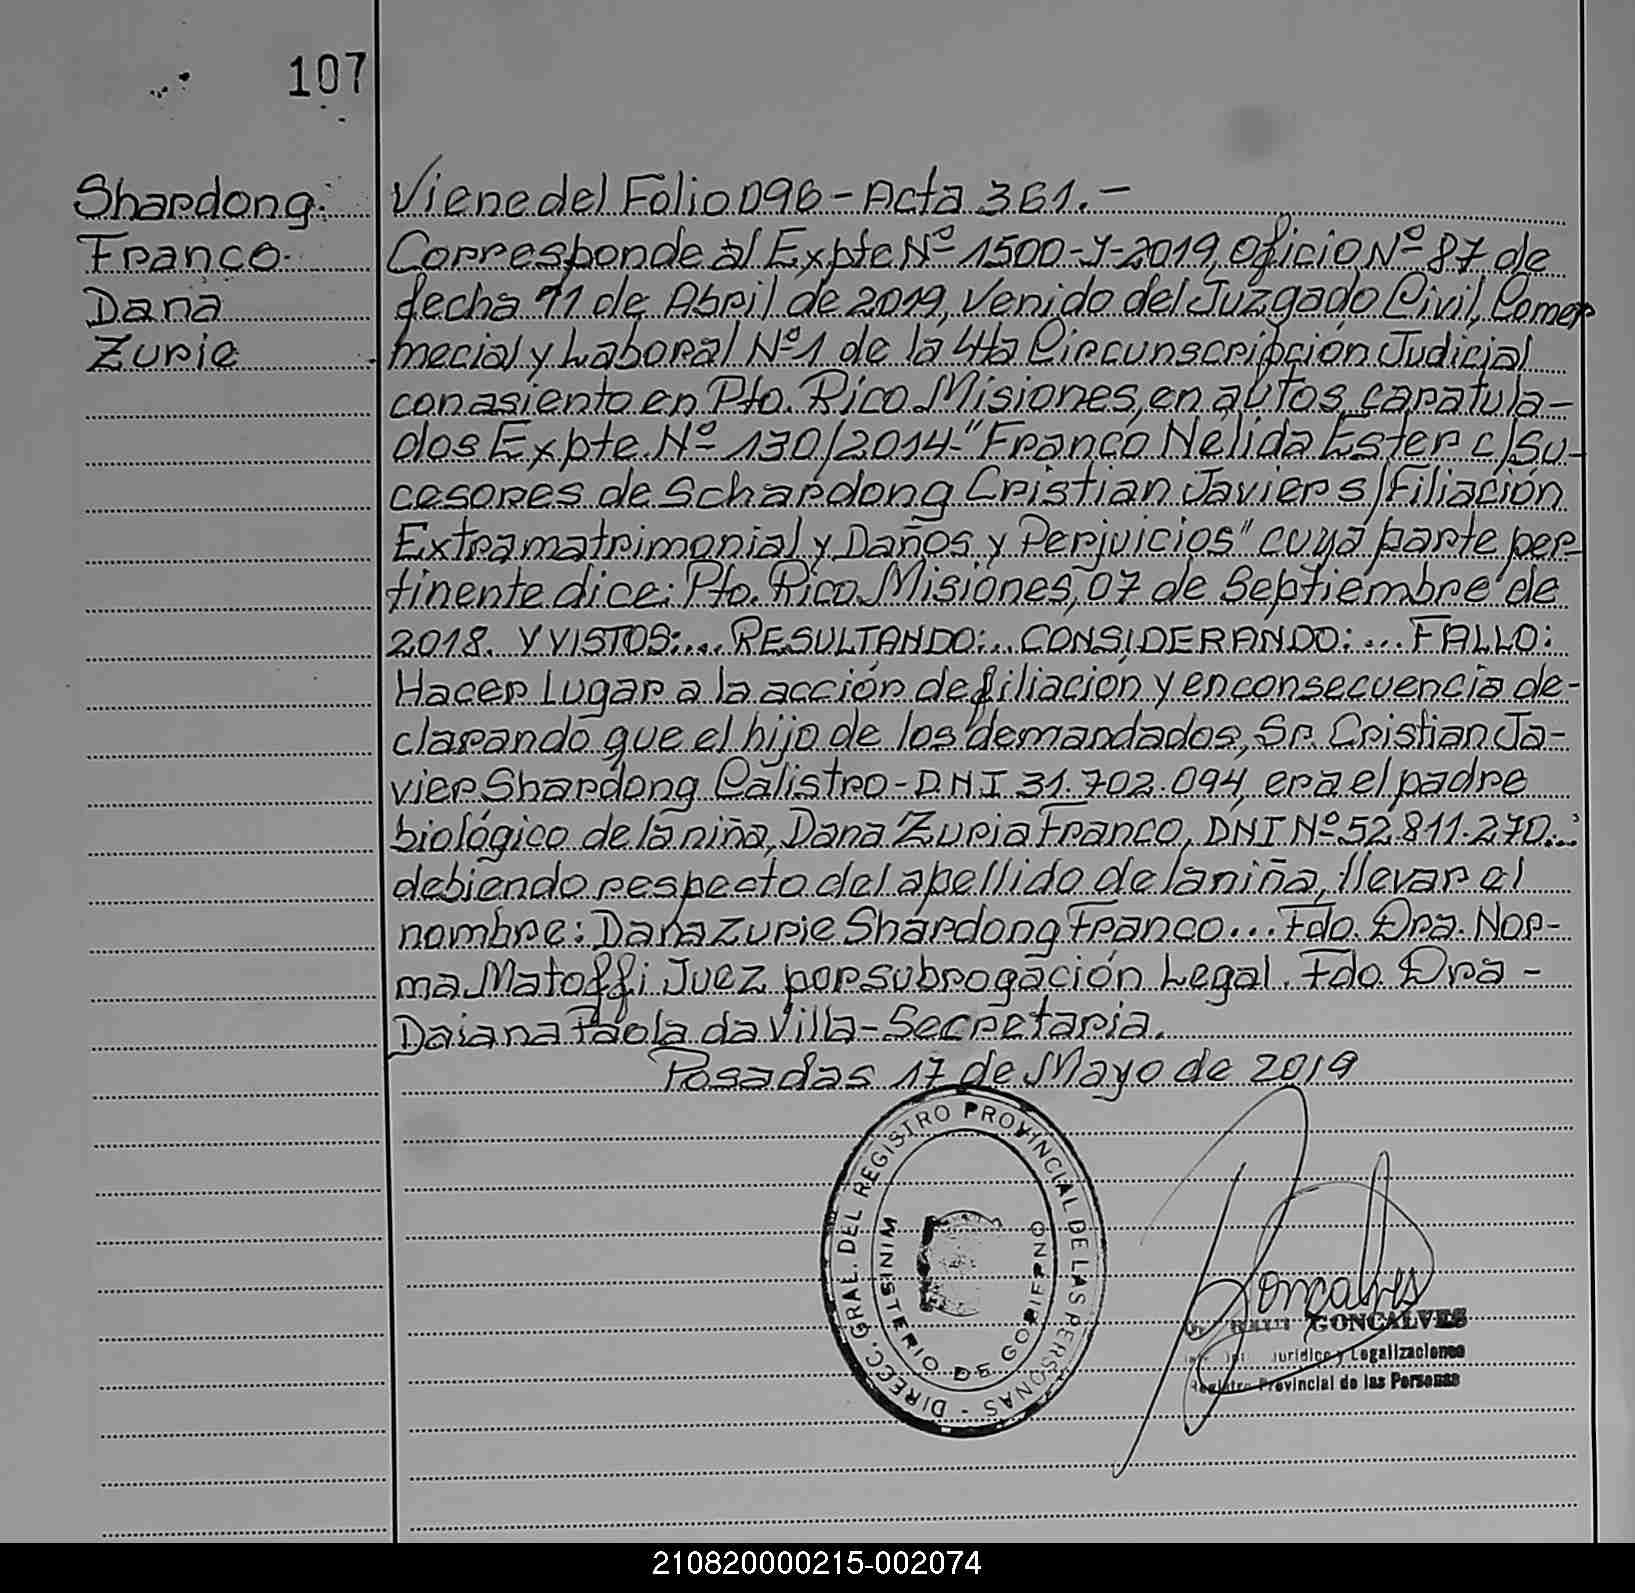 107
Shardong
Franco
Dana
Zurie
Viene del Folio 096 - Acta 361.-
Corresponde al Expte Nº 1500-Y-2019, Oficio Nº 87 de
fecha 11 de Abril de 2019, Venido del Juzgado Civil, Comer
mecial y Laboral Nº1 de la 4ta Circunscripción Judicial
con asiento en Pto. Rico Misiones, en autos caratula-
dos Expte. Nº 130/2014-"Franco Nélida Ester c/Su-
cesores de Schardong Cristian Javier s/Filiación
Extramatrimonial y Daños y Perjuicios" cuya parte per-
tinente dice: Pto. Rico Misiones, 07 de Septiembre de
2018. Y VISTOS:... RESULTANDO:... CONSIDERANDO:... FALLO:
Hacer Lugar a la acción de filiación y en consecuencia de-
clarando que el hijo de los demandados, Sr. Cristian Ja-
vier Shardong Calistro - DNI 31.702.094, era el padre
biológico de la niña, Dana Zuria Franco, DNI Nº 52.811.270...
debiendo respecto del apellido de la niña, llevar el
nombre: Dana Zurie Shardong Franco... Fdo. Dra. Nor-
ma Matoffi Juez por subrogación Legal. Fdo. Dra -
Daiana Paola da Villa - Secretaria.
Posadas 17 de Mayo de 2019
DIRECC. GRAL. DEL REGISTRO PROVINCIAL DE LAS PERSONAS -
MINISTERIO DE GOBIERNO
Goncalves
GONCALVES
Jurídico y Legalizaciones
Registro Provincial de las Personas
210820000215-002074